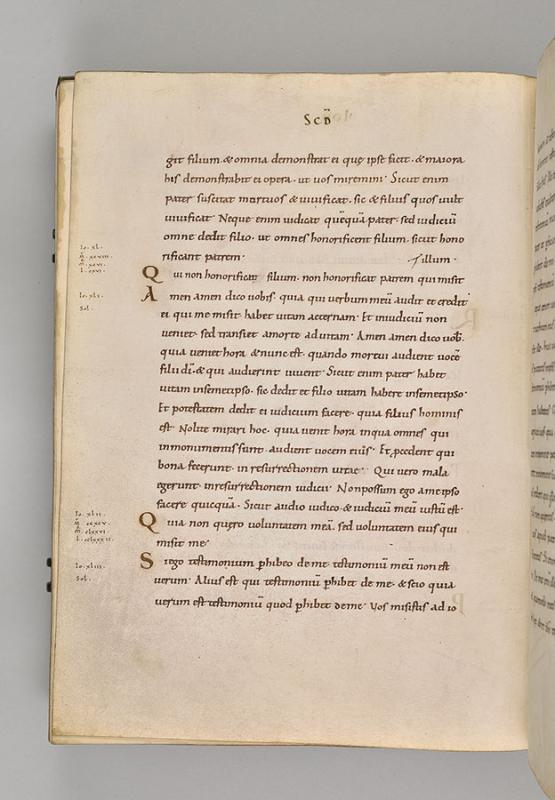 Scd̄
git filium. & omnia demonstrat ei quę ipse facit. & maiora
his demonstrabit ei opera. ut vos miremini. Sicut enim
pater suscitat mortuos & vivificat. sic & filius quos vult
vivificat. Neque enim iudicat quēquā pater. sed iudiciū
omne dedit filio. ut omnes honorificent filium. sicut hono
rificant patrem. illum.
Io. xl.
Qui non honorificat filium. non honorificat patrem qui misit
Io. xli.
Amen amen dico vobis. quia qui verbum meū audit et credit
Sol.
ei qui me misit habet vitam aeternam. Et iudiciū non
veniet. sed transiet amorte advitam. Amen amen dico vob.
quia veniet hora & nunc est. quando mortui audient vocē
filii dī. & qui audierint vivent. Sicut enim pater habet
vitam insemetipso. sic dedit et filio vitam habere insemetipso.
Et potestatem dedit ei iudicium facere. quia filius hominis
est. Nolite mirari hoc. quia venit hora inqua omnes qui
inmonumentis sunt. audient vocem eius. Et, pcedent qui
bona fecerunt. in resurrectionem vitae. Qui vero mala
egerunt. inresurrectionem iudicii. Nonpossum ego ame ipso
facere quicquā. Sicut audio iudico. & iudiciū meū iustū est.
Io. xlii.
Quia non quęro voluntatem meā. sed voluntatem eius qui
misit me.
Io. xliii.
Si ego testimonium phibeo de me. testimoniū meū non est
Sol.
verum. Alius est qui testimoniū phibet de me. & scio quia
verum est testimoniū quod phibet deme. Vos misistis ad io